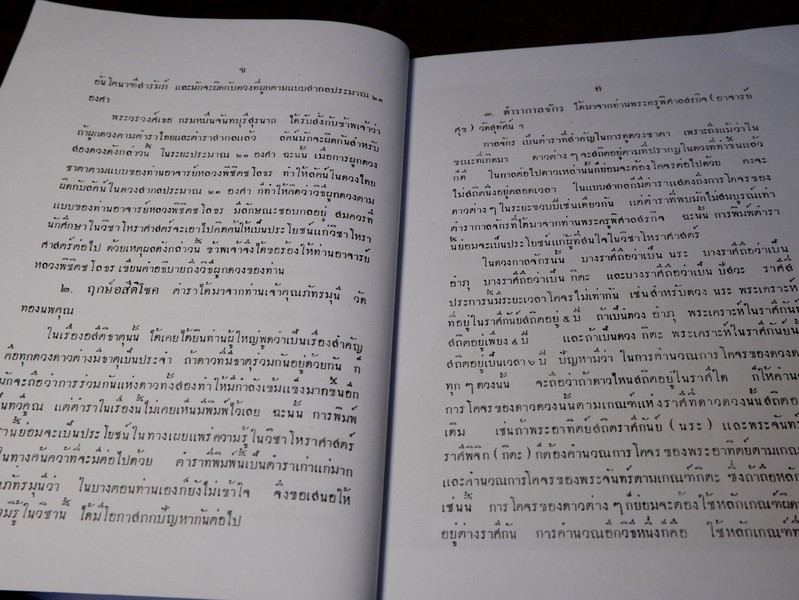 ข
ขันโตนาทีสารัมภ์ และมักจะผิดกับดวงที่ผูกตามแบบสากลประมาณ ๒๓
องศา
พระวรวงศ์เธอ กรมหมื่นจันทบุรีสุรนาถ ได้รับสั่งกับข้าพเจ้าว่า
ถ้าผูกดวงตามตำราไทยและตำราสากลแล้ว ลัคน์มักจะผิดกันสำหรับ
สองดวงดังกล่าวนี้ ในระยะประมาณ ๒๓ องศา ฉะนั้น เมื่อการผูกดวง
ชาตาตามแบบของท่านอาจารย์หลวงพิชิตช โลธร ทำให้ลัคน์ในดวงไทย
ผิดกับลัคน์ในดวงสากลประมาณ ๒๓ องศา ก็ทำให้คิดว่าวิธีผูกดวงตาม
แบบของท่านอาจารย์หลวงพิชิตช โลธร มีลักษณะชอบกลอยู่ สมควรที่
นักศึกษาในวิชาโหราศาสตร์จะเอาไปคิดค้นให้เป็นประโยชน์แก่วิชาโหรา
ศาสตร์ต่อไป ด้วยเหตุผลดังกล่าวนี้ ข้าพเจ้าจึงได้ขอร้องให้ท่านอาจารย์
หลวงพิชิตช โลธร เขียนคำอธิบายถึงวิธีผูกดวงของท่าน
๒. ฤกษ์อสีติโชค ตำราได้มาจากท่านเจ้าคุณภัทรมุนี วัด
ทองนพคุณ
ในเรื่องอสีติธาตุนั้น ได้เคยได้ยินท่านผู้ใหญ่พูดว่าเป็นเรื่องสำคัญ
คือทุกดวงดาวต่างมีธาตุเป็นประจำ ถ้าดาวที่มีธาตุร่วมกันอยู่ด้วยกัน ก็
มักจะถือว่าการร่วมกันแห่งดาวทั้งสองทำให้มีกำลังเข้มแข็งมากขึ้นอีก
็นทวีคูณ แต่ตำราในเรื่องนี้ไม่เคยเห็นมีพิมพ์ไว้เลย ฉะนั้น การพิมพ์
รานี้ย่อมจะเป็นประโยชน์ในทางเผยแพร่ความรู้ในวิชาโหราศาสตร์
ในทางค้นคว้าที่จะมีต่อไปด้วย ตำราที่พิมพ์นี้เป็นตำราเก่าแก่มาก
ภัทรมุนีว่า ในบางตอนท่านเองก็ยังไม่เข้าใจ จึงขอเสนอให้
ามรู้ในวิชานี้ ได้มีโอกาสถกปัญหากันต่อไป
ค
๓. ตำรากาลจักร ได้มาจากท่านพระครูพิศาลสรกิจ (อาจารย์
ศุข) วัดสุทัศน์ ฯ
กาลจักร เป็นตำราที่สำคัญในการดูดวงชาตา เพราะถึงแม้ว่าใน
ขณะที่เกิดมา ดาวต่าง ๆ จะสถิตอยู่ตามที่ปรากฏในดวงที่ทำขึ้นแล้ว
ก็ดี ในกาลต่อไปดาวเหล่านั้นก็ย่อมจะต้องโคจรต่อไปด้วย คงจะ
ไม่สถิตนิ่งอยู่ตลอดเวลา ในแบบสากลก็มีตำราแสดงถึงการโคจรของ
ดาวต่างๆ ในระยะขวบปีเช่นเดียวกัน แต่ตำราที่พบมักไม่สมบูรณ์เท่า
ตำรากาลจักรที่ได้มาจากท่านพระครูพิศาลสรกิจ ฉะนั้น การพิมพ์ตำรา
นี้ย่อมจะเป็นประโยชน์แก่ผู้ที่สนใจในวิชาโหราศาสตร์
ในดวงกาลจักรนั้น บางราศีถือว่าเป็น นระ บางราศีถือว่าเป็น
อำภุ บางราศีถือว่าเป็น กีตะ และบางราศีถือว่าเป็น ปัสวะ ราศีสี่
ประการนี้มีระยะเวลาโคจรไม่เท่ากัน เช่นสำหรับดวง นระ พระเคราะห์
ที่อยู่ในราศีกันย์สถิตอยู่ ๕ ปี ถ้าเป็นดวง อำภุ พระเคราะห์ในราศีกันย์
สถิตอยู่เพียง ๔ ปี และถ้าเป็นดวง กีตะ พระเคราะห์ในราศีกันย์น
สถิตอยู่เป็นเวลา ๖ ปี ปัญหามีว่า ในการคำนวณการโคจรของดวงด
ทุก ๆ ดวงนั้น จะถือว่าถ้าดาวไหนสถิตอยู่ในราศีใด ก็ให้คำน
การโคจรของดาวดวงนั้นตามเกณฑ์แห่งราศีที่ดาวดวงนั้นสถิต
เดิม เช่นถ้าพระอาทิตย์สถิตราศีกันย์ (นระ) และพระจันทร
ราศีพิจิก (กีตะ) ก็ต้องคำนวณการโคจรของพระอาทิตย์ตามเกณ
และคำนวณการโคจรของพระจันทร์ตามเกณฑ์กีตะ ซึ่งถ้าถือหลัก
เช่นนี้ การโคจรของดาวต่างๆ ก็ย่อมจะต้องใช้หลักเกณฑ์ผิด
อยู่ต่างราศีกัน การคำนวณอีกวิธีหนึ่งก็คือ ใช้หลักเกณฑ์ที่